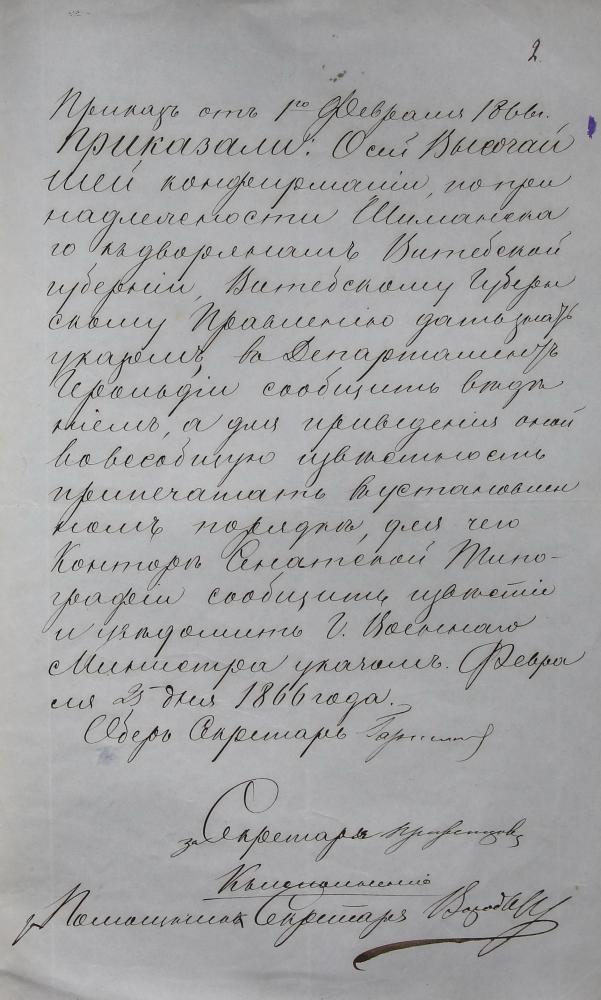 2
Приказъ отъ 1го Февраля 1866 г.
Приказали: О сей Высочай
шей конфирмаціи, по при
надлежности Шиманска
го къ дворянамъ Витебской
губерніи, Витебскому Губерн
скому Правленію дать знать
указомъ, въ Департаментъ
Герольдіи сообщить вѣдѣ
ніемъ, а для приведенія оной
во всеобщую извѣстность
припечатать въ установлен
номъ порядкѣ, для чего
Конторѣ Сенатской Типо-
графіи сообщить извѣстіе
и увѣдомить Г. Военнаго
Министра указомъ. Февра
ля 25 дня 1866 года.
Оберъ Секретарь
за Секретаря
Къ исполненію
Помощникъ Секретаря